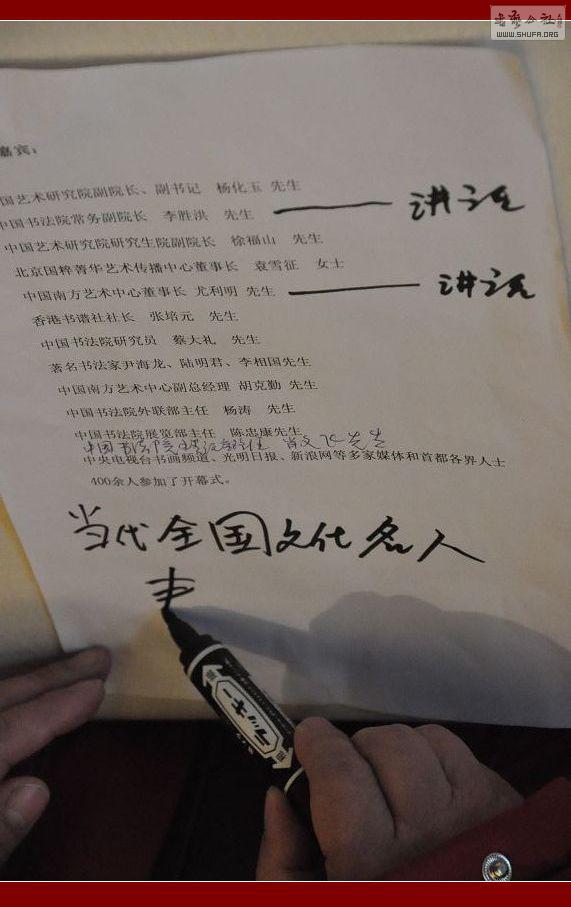 書法公社
WWW.SHUFA.ORG
嘉宾：
国艺术研究院副院长、副书记 杨化玉 先生
中国书法院常务副院长 李胜洪 先生 讲话
中国艺术研究院研究生院副院长 徐福山 先生
北京国粹菁华艺术传播中心董事长 袁雪征 女士
中国南方艺术中心董事长 尤利明 先生 讲话
香港书谱社社长 张培元 先生
中国书法院研究员 蔡大礼 先生
著名书法家尹海龙、陆明君、李相国先生
中国南方艺术中心副总经理 胡克勤 先生
中国书法院外联部主任 杨涛 先生
中国书法院展览部主任 陈忠康先生
中国书法院 主任 先生
中央电视台书画频道、光明日报、新浪网等多家媒体和首都各界人士
400余人参加了开幕式。
当代全国文化名人
ラッキー